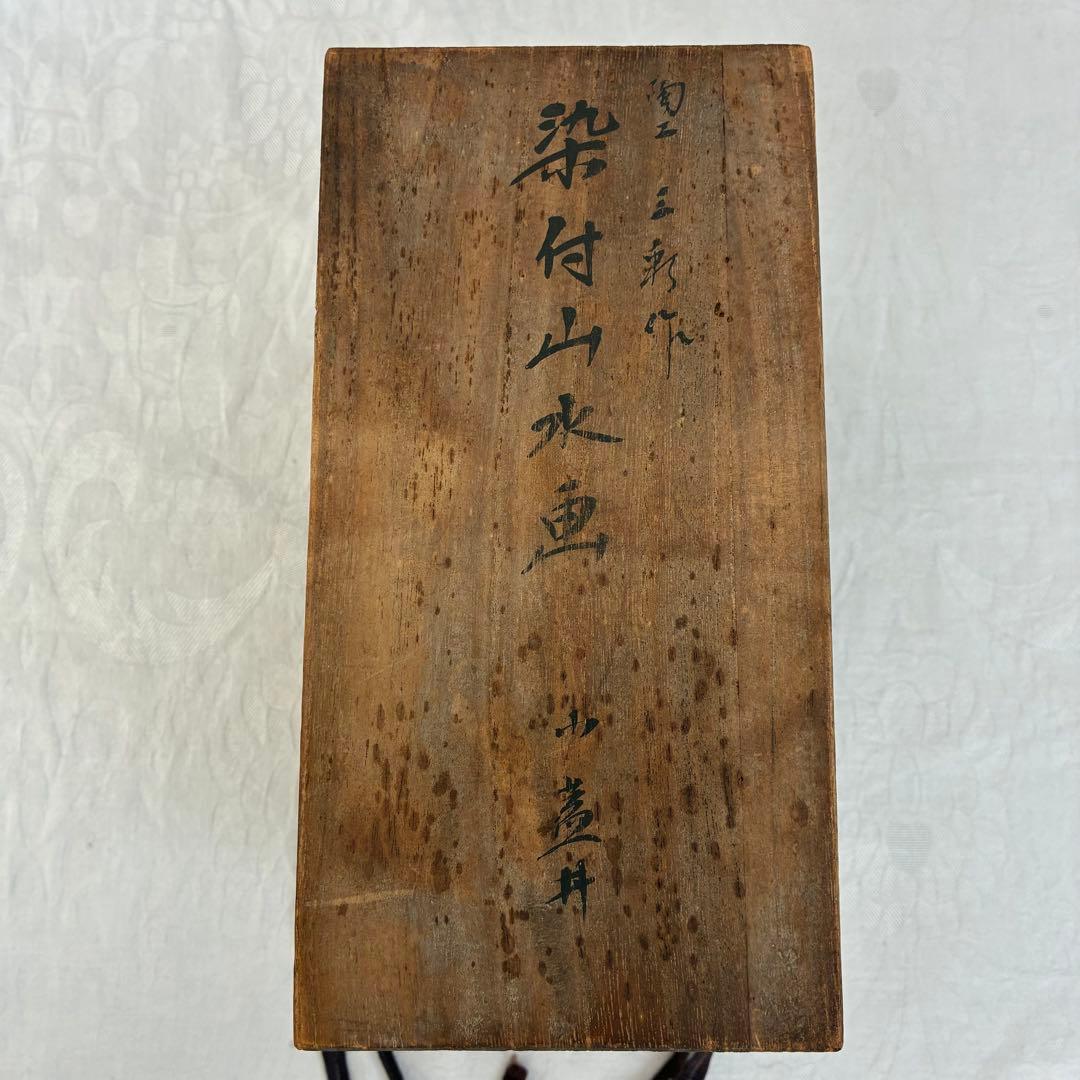 陶工 三彩作
染付山水画 小蓋丼